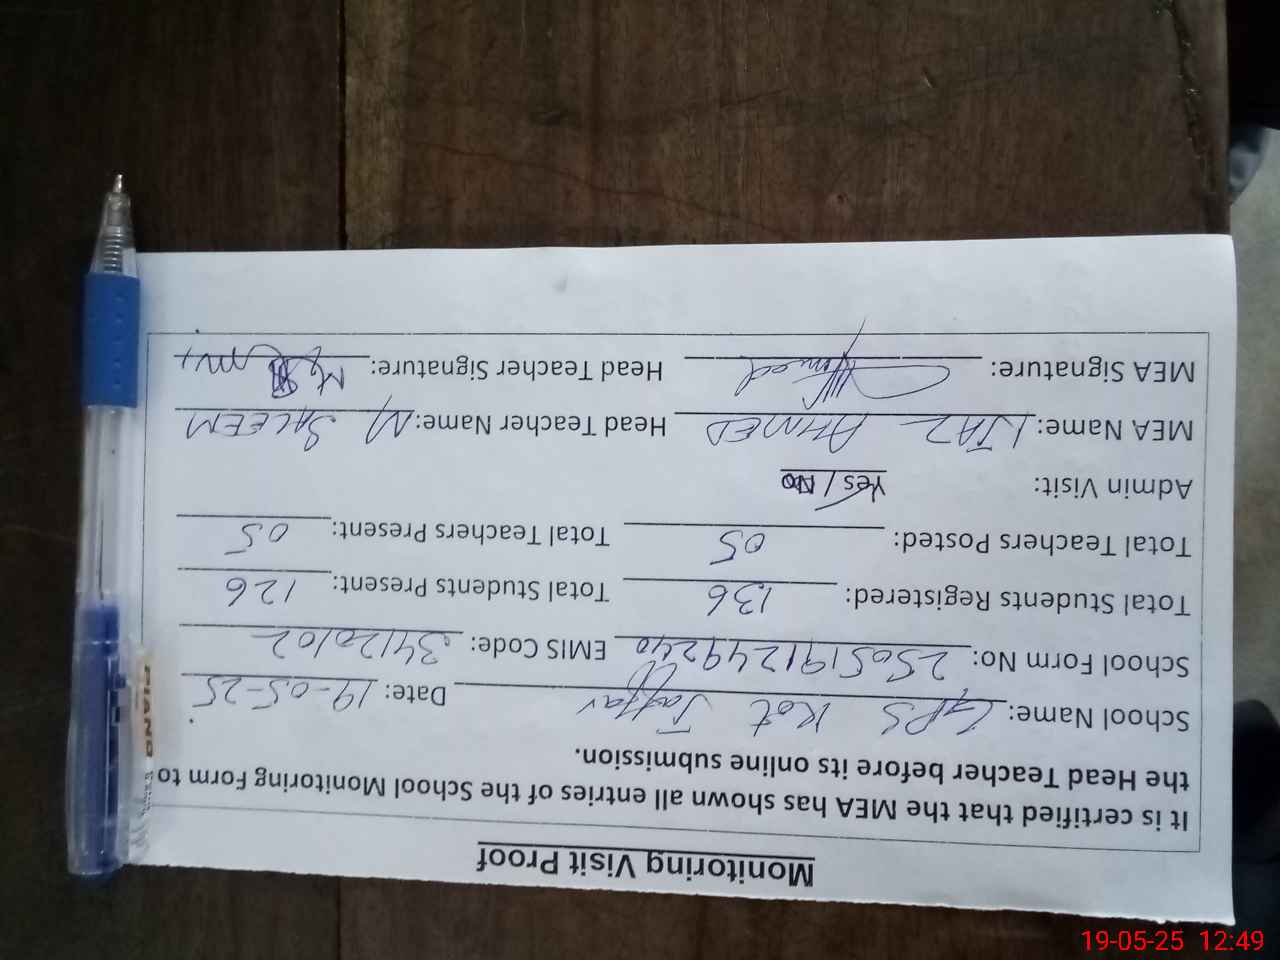 Monitoring Visit Proof
It is certified that the MEA has shown all entries of the School Monitoring Form to
the Head Teacher before its online submission.
School Name: GPS Kot Jaffar Date: 19-05-25
School Form No: 2505191249240 EMIS Code: 34120102
Total Students Registered: 136 Total Students Present: 126
Total Teachers Posted: 05 Total Teachers Present: 05
Admin Visit: Yes / No
MEA Name: IJAZ AHMED Head Teacher Name: M SALEEM
MEA Signature: Head Teacher Signature:
PIANO
19-05-25 12:49